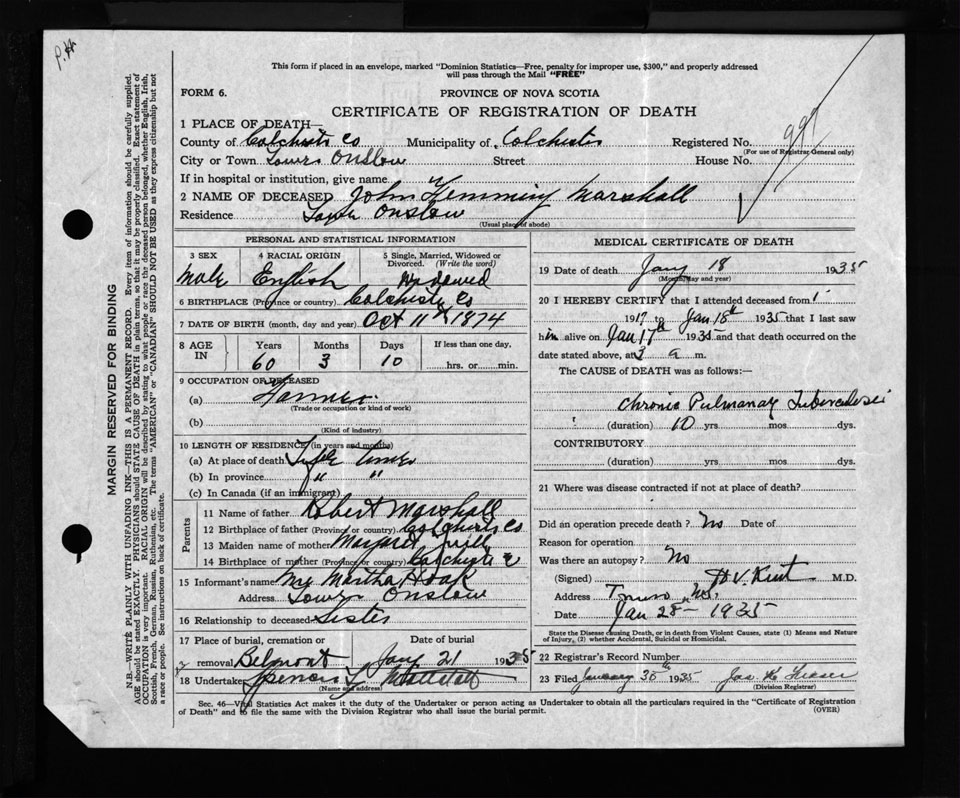 P.H.
This form if placed in an envelope, marked "Dominion Statistics—Free, penalty for improper use, $300," and properly addressed
will pass through the Mail "FREE"
FORM 6.
PROVINCE OF NOVA SCOTIA
CERTIFICATE OF REGISTRATION OF DEATH
1 PLACE OF DEATH—
County of Colchester Co Municipality of Colchester Registered No.
(For use of Registrar General only)
City or Town Lower Onslow Street House No.
If in hospital or institution, give name
2 NAME OF DECEASED John Flemming Marshall
Residence Onslow
(Usual place of abode)
PERSONAL AND STATISTICAL INFORMATION
3 SEX 4 RACIAL ORIGIN 5 Single, Married, Widowed or
Divorced. (Write the word)
Male English Widowed
6 BIRTHPLACE (Province or country) Colchester Co
7 DATE OF BIRTH (month, day and year) Oct 11th 1874
8 AGE IN Years Months Days If less than one day,
60 3 10 hrs. or min.
9 OCCUPATION OF DECEASED
(a) Farmer
(Trade or occupation or kind of work)
(b)
(Kind of industry)
10 LENGTH OF RESIDENCE (in years and months)
(a) At place of death Life time
(b) In province " "
(c) In Canada (if an immigrant)
Parents
11 Name of father Robert Marshall
12 Birthplace of father (Province or country) Colchester Co
13 Maiden name of mother Margaret
14 Birthplace of mother (Province or country) Colchester
15 Informant's name Mrs Martha Hoak
Address Lower Onslow
16 Relationship to deceased Sister
17 Place of burial, cremation or Date of burial
removal Belmont Jany 21 1935
18 Undertaker Spencer
(Name and address)
MEDICAL CERTIFICATE OF DEATH
19 Date of death Jany 18 1935
(Month, day and year)
20 I HEREBY CERTIFY that I attended deceased from
1917 to Jan 18th 1935 that I last saw
him alive on Jan 17th 1935 and that death occurred on the
date stated above, at 3 a m.
The CAUSE of DEATH was as follows:—
Chronic Pulmonary Tuberculosis
(duration) 10 yrs mos dys.
CONTRIBUTORY
(duration) yrs mos dys.
21 Where was disease contracted if not at place of death?
Did an operation precede death? No Date of
Reason for operation
Was there an autopsy? No
(Signed) H V Kent M.D.
Address Truro N.S.
Date Jan 28 - 1935
State the Disease causing Death, or in death from Violent Causes, state (1) Means and Nature
of Injury, (2) whether Accidental, Suicidal or Homicidal.
22 Registrar's Record Number
23 Filed January 1935
(Division Registrar)
Sec. 46—Vital Statistics Act makes it the duty of the Undertaker or person acting as Undertaker to obtain all the particulars required in the "Certificate of Registration
of Death" and to file the same with the Division Registrar who shall issue the burial permit.
(OVER)
MARGIN RESERVED FOR BINDING
N.B.—WRITE PLAINLY WITH UNFADING INK—THIS IS A PERMANENT RECORD. Every item of information should be carefully supplied.
AGE should be stated EXACTLY. PHYSICIANS should STATE CAUSE OF DEATH in plain terms, so that it may be properly classified. Exact statement of
OCCUPATION is very important. RACIAL ORIGIN will be described by stating to what people or race the deceased person belonged, whether English, Irish,
Scottish, French, German, Russian, Ruthenian, etc. The terms "AMERICAN" or "CANADIAN" SHOULD NOT BE USED as they express citizenship but not
a race or people. See instructions on back of certificate.